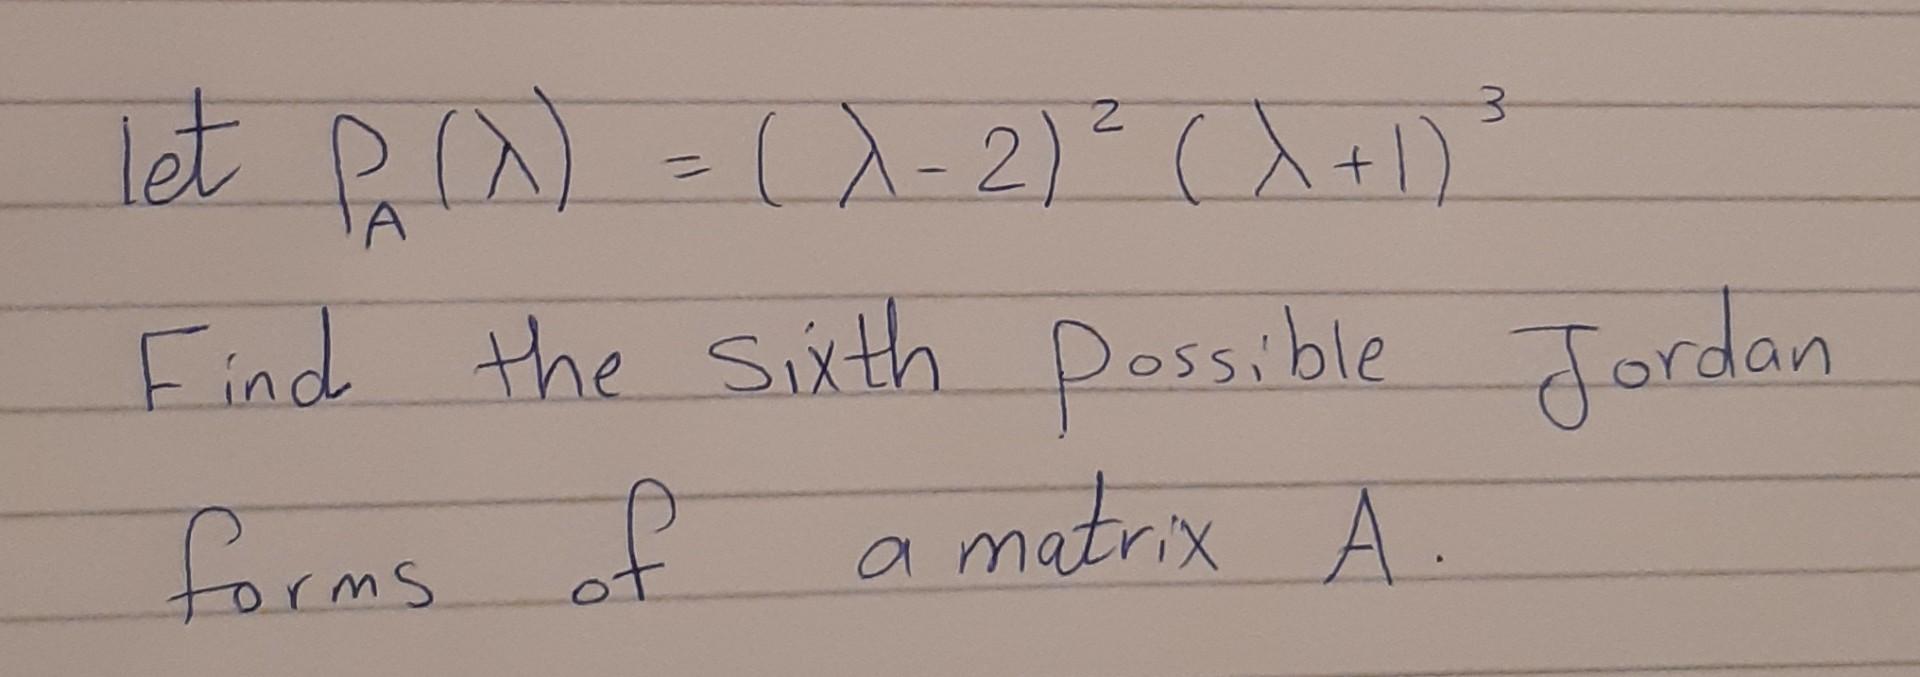 let P_A(λ) = (λ-2)² (λ+1)³
Find the sixth possible Jordan
forms of a matrix A.